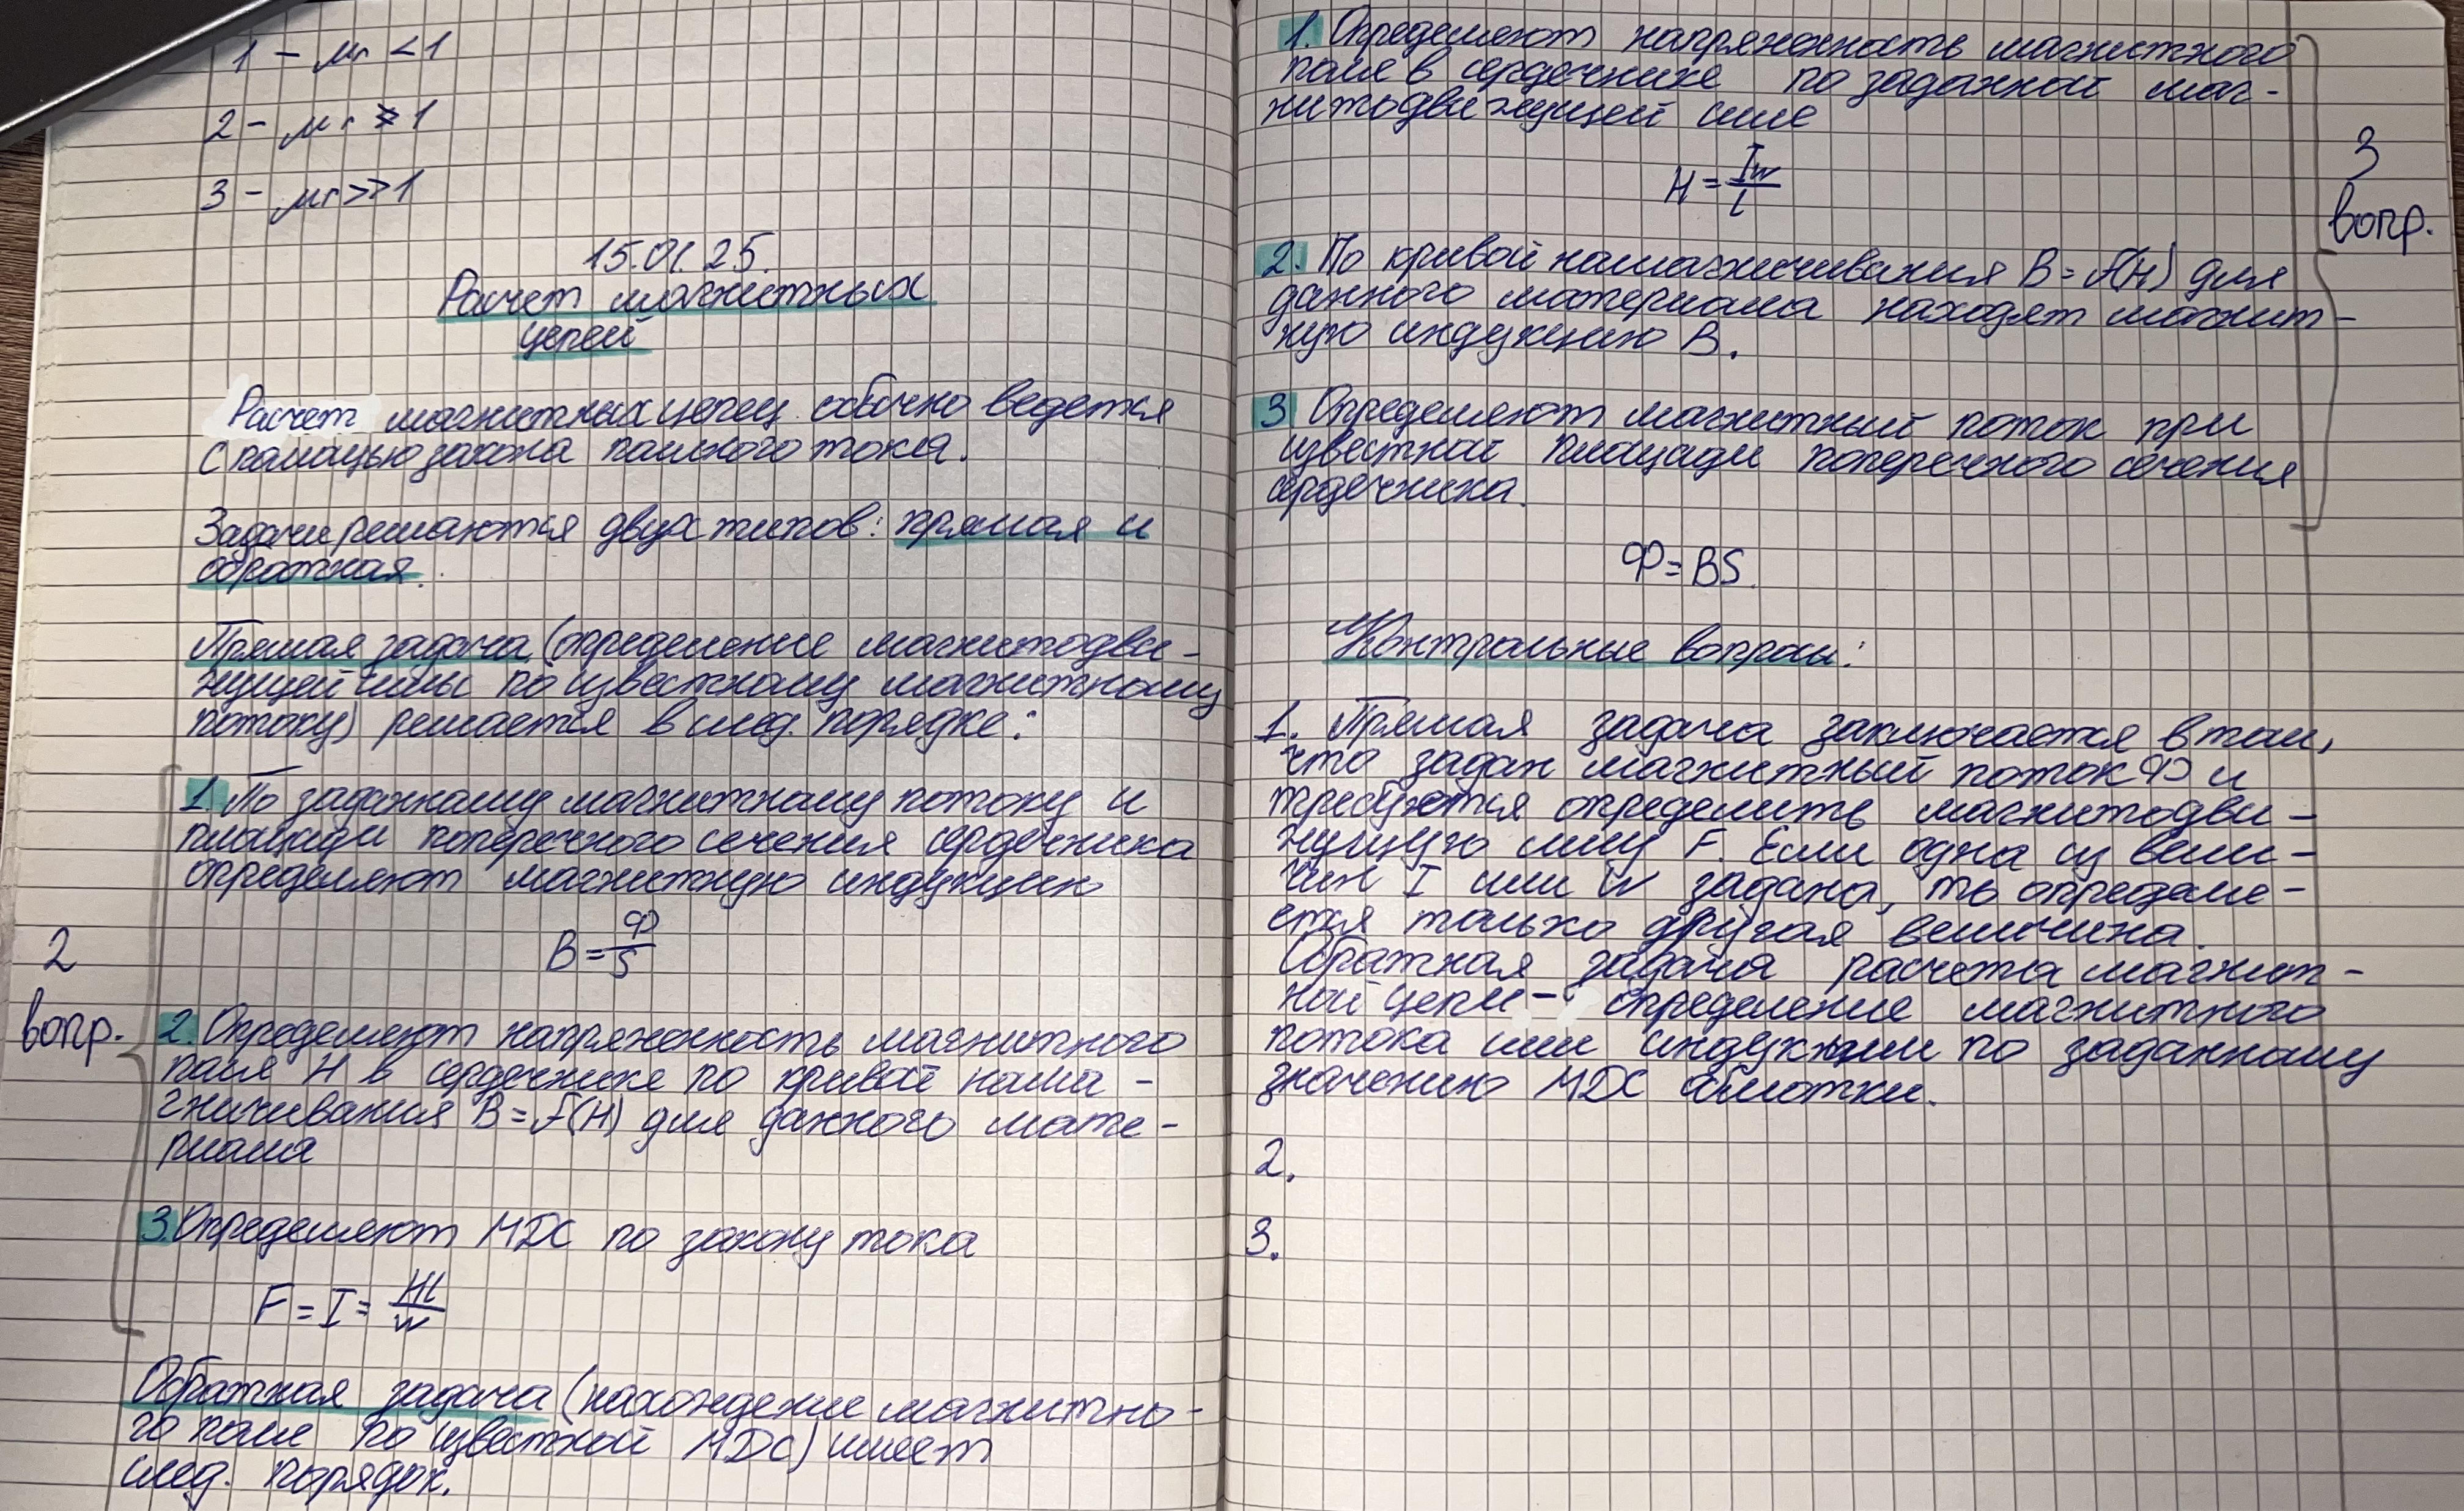 1 - μr < 1
2 - μr > 1
3 - μr >> 1
15.01.25.
Расчет магнитных
цепей
Расчет магнитных цепец обычно ведется
с помощью закона полного тока.
Задачи решаются двух типов: прямая и
обратная.
Прямая задача (определение магнитодви-
жущей силы по известному магнитному
потоку) решается в след. порядке:
1. По заданному магнитному потоку и
площади поперечного сечения сердечника
определяют магнитную индукцию
B = Ф/S
2
вопр.
2. Определяют напряженность магнитного
поля H в сердечнике по кривой нама-
гничивания B = f(H) для данного мате-
риала
3. Определяют МДС по закону тока
F = I = Hl/w
Обратная задача (нахождение магнитно-
го поля по известной МДС) имеет
след. порядок.
1. Определяют напряженность магнитного
поля в сердечнике по заданной маг-
нитодвижущей силе
H = Iw/l
3
вопр.
2. По кривой намагничивания B = f(H) для
данного материала находят магнит-
ную индукцию B.
3 Определяют магнитный поток при
известной площади поперечного сечения
сердечника.
Ф = BS.
Контрольные вопросы:
1. Прямая задача заключается в том,
что задан магнитный поток Ф и
требуется определить магнитодви-
жущую силу F. Если одна из вели-
чин I или W задана, то определя-
ется только другая величина.
Обратная задача расчета магнит-
ной цепи - определение магнитного
потока или индукции по заданному
значению МДС обмотки.
2.
3.